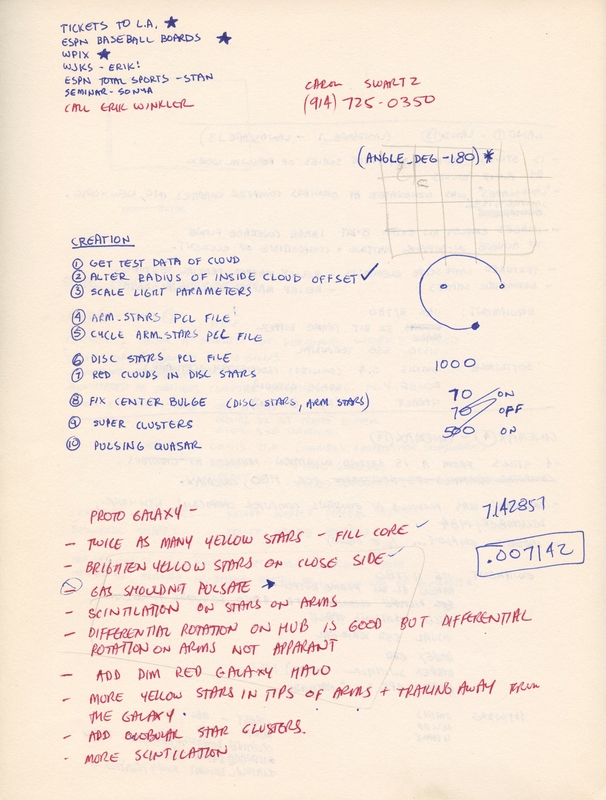 TICKETS TO L.A. ★
ESPN BASEBALL BOARDS ★
WPIX ★
WJKS - ERIK!
ESPN TOTAL SPORTS - STAN
SEMINAR - SONYA
CALL ERIK WINKLER
CAROL SWARTZ
(914) 725-0350
(ANGLE_DEG - 180) *
CREATION
① GET TEST DATA OF CLOUD
② ALTER RADIUS OF INSIDE CLOUD OFFSET ✓
③ SCALE LIGHT PARAMETERS
④ ARM_STARS PCL FILE
⑤ CYCLE ARM_STARS PCL FILE
⑥ DISC STARS PCL FILE
⑦ RED CLOUDS IN DISC STARS
⑧ FIX CENTER BULGE (DISC STARS, ARM STARS)
⑨ SUPER CLUSTERS
⑩ PULSING QUASAR
1000
70 ON
70 OFF
500 ON
7142857
.007142
PROTO GALAXY -
- TWICE AS MANY YELLOW STARS - FILL CORE ✓
- BRIGHTEN YELLOW STARS ON CLOSE SIDE ✓
- GAS SHOULDN'T PULSATE ★
- SCINTILATION ON STARS ON ARMS
- DIFFERENTIAL ROTATION ON HUB IS GOOD BUT DIFFERENTIAL
ROTATION ON ARMS NOT APPARANT
- ADD DIM RED GALAXY HALO
- MORE YELLOW STARS IN TIPS OF ARMS + TRAILING AWAY FROM
THE GALAXY.
- ADD GLOBULAR STAR CLUSTERS.
- MORE SCINTILATION